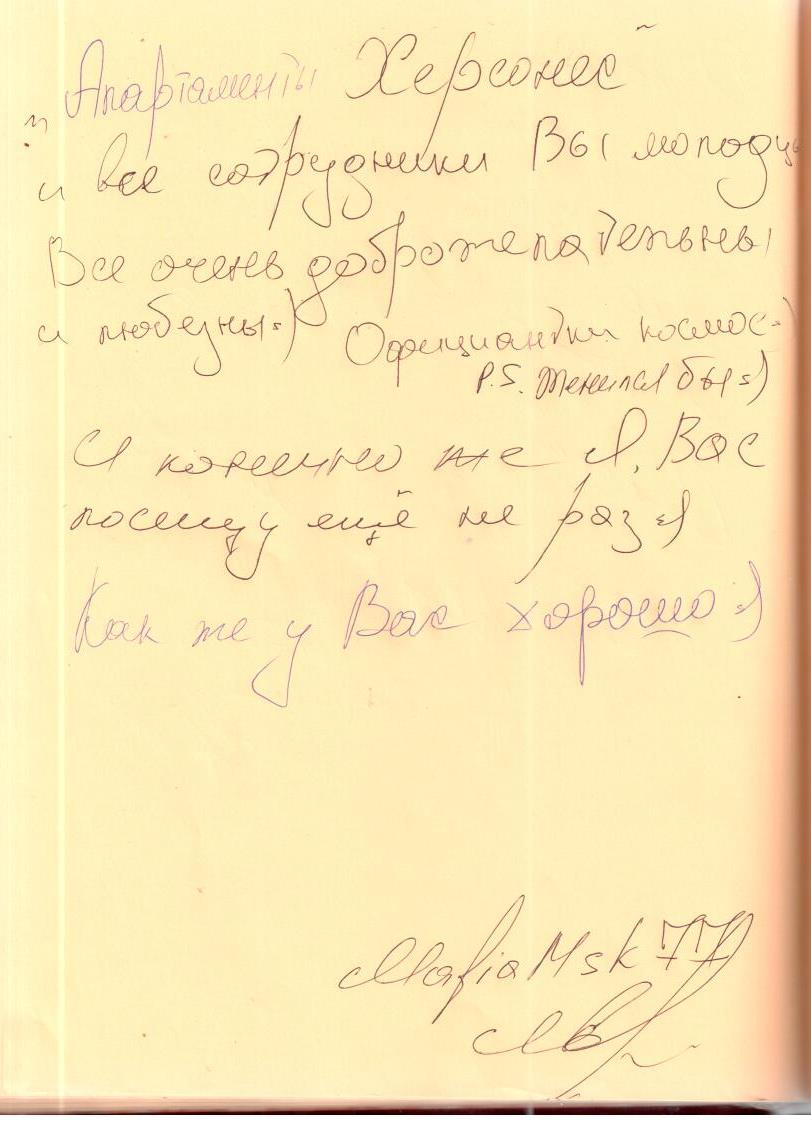 "Апартаменты Херсонес"
и все сотрудники Вы молодцы
Все очень доброжелательны
и любезны=) Официантки космос=)
P.S. Женился бы=)
И конечно же Я, Вас
посещу ещё не раз=)
Как же у Вас хорошо=)
MafiaMsk77